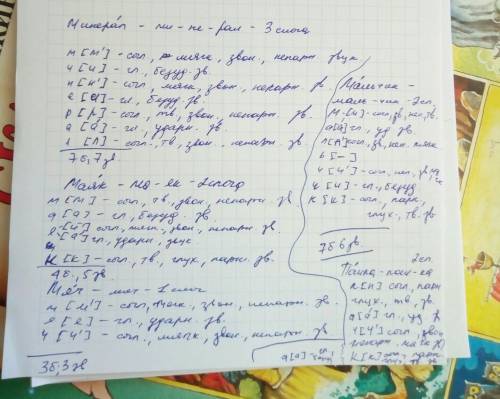 Минерал - ми-не-рал - 3 слога
м [м'] - согл., мягк., звон., непарн. звук
и [и] - гл., безуд. зв.
н [н'] - согл., мягк., звон., непарн. зв.
е [и] - гл., безуд. зв.
р [р] - согл., тв., звон., непарн. зв.
а [а] - гл., ударн. зв.
л [л] - согл., тв., звон., непарн. зв.
7б, 7зв
Маяк - ма-як - 2 слога
м [м] - согл., тв., звон., непарн. зв
а [а] - гл., безуд. зв.
[й'] согл., мягк., звон., непарн. зв
[а] гл., ударн. звук
к [к] - согл., тв., глух., парн. зв.
4б, 5зв
Мяч - мяч - 1 слог
м [м'] - согл., мягк., звон., непарн. зв.
- гл., ударн. зв.
ч [ч'] - согл., мягк., непарн. зв
3б, 3зв
Мальчик -
маль-чик - 2сл.
м [м] - согл., зв, неп, тв.
а [а] - гл, уд. зв.
л [л'] согл, зв, неп, мягк
ь [-]
ч [ч'] - согл, неп
и [и] - гл., безуд
к [к] - согл., парн.,
глух., тв. зв
7б 6 зв
2сл.
п [п] согл, парн
глух., тв. зв
а [а] гл, уд
[й'] согл, звон
непарн., мягк
к [к] парн
глух тв зв
а [а]